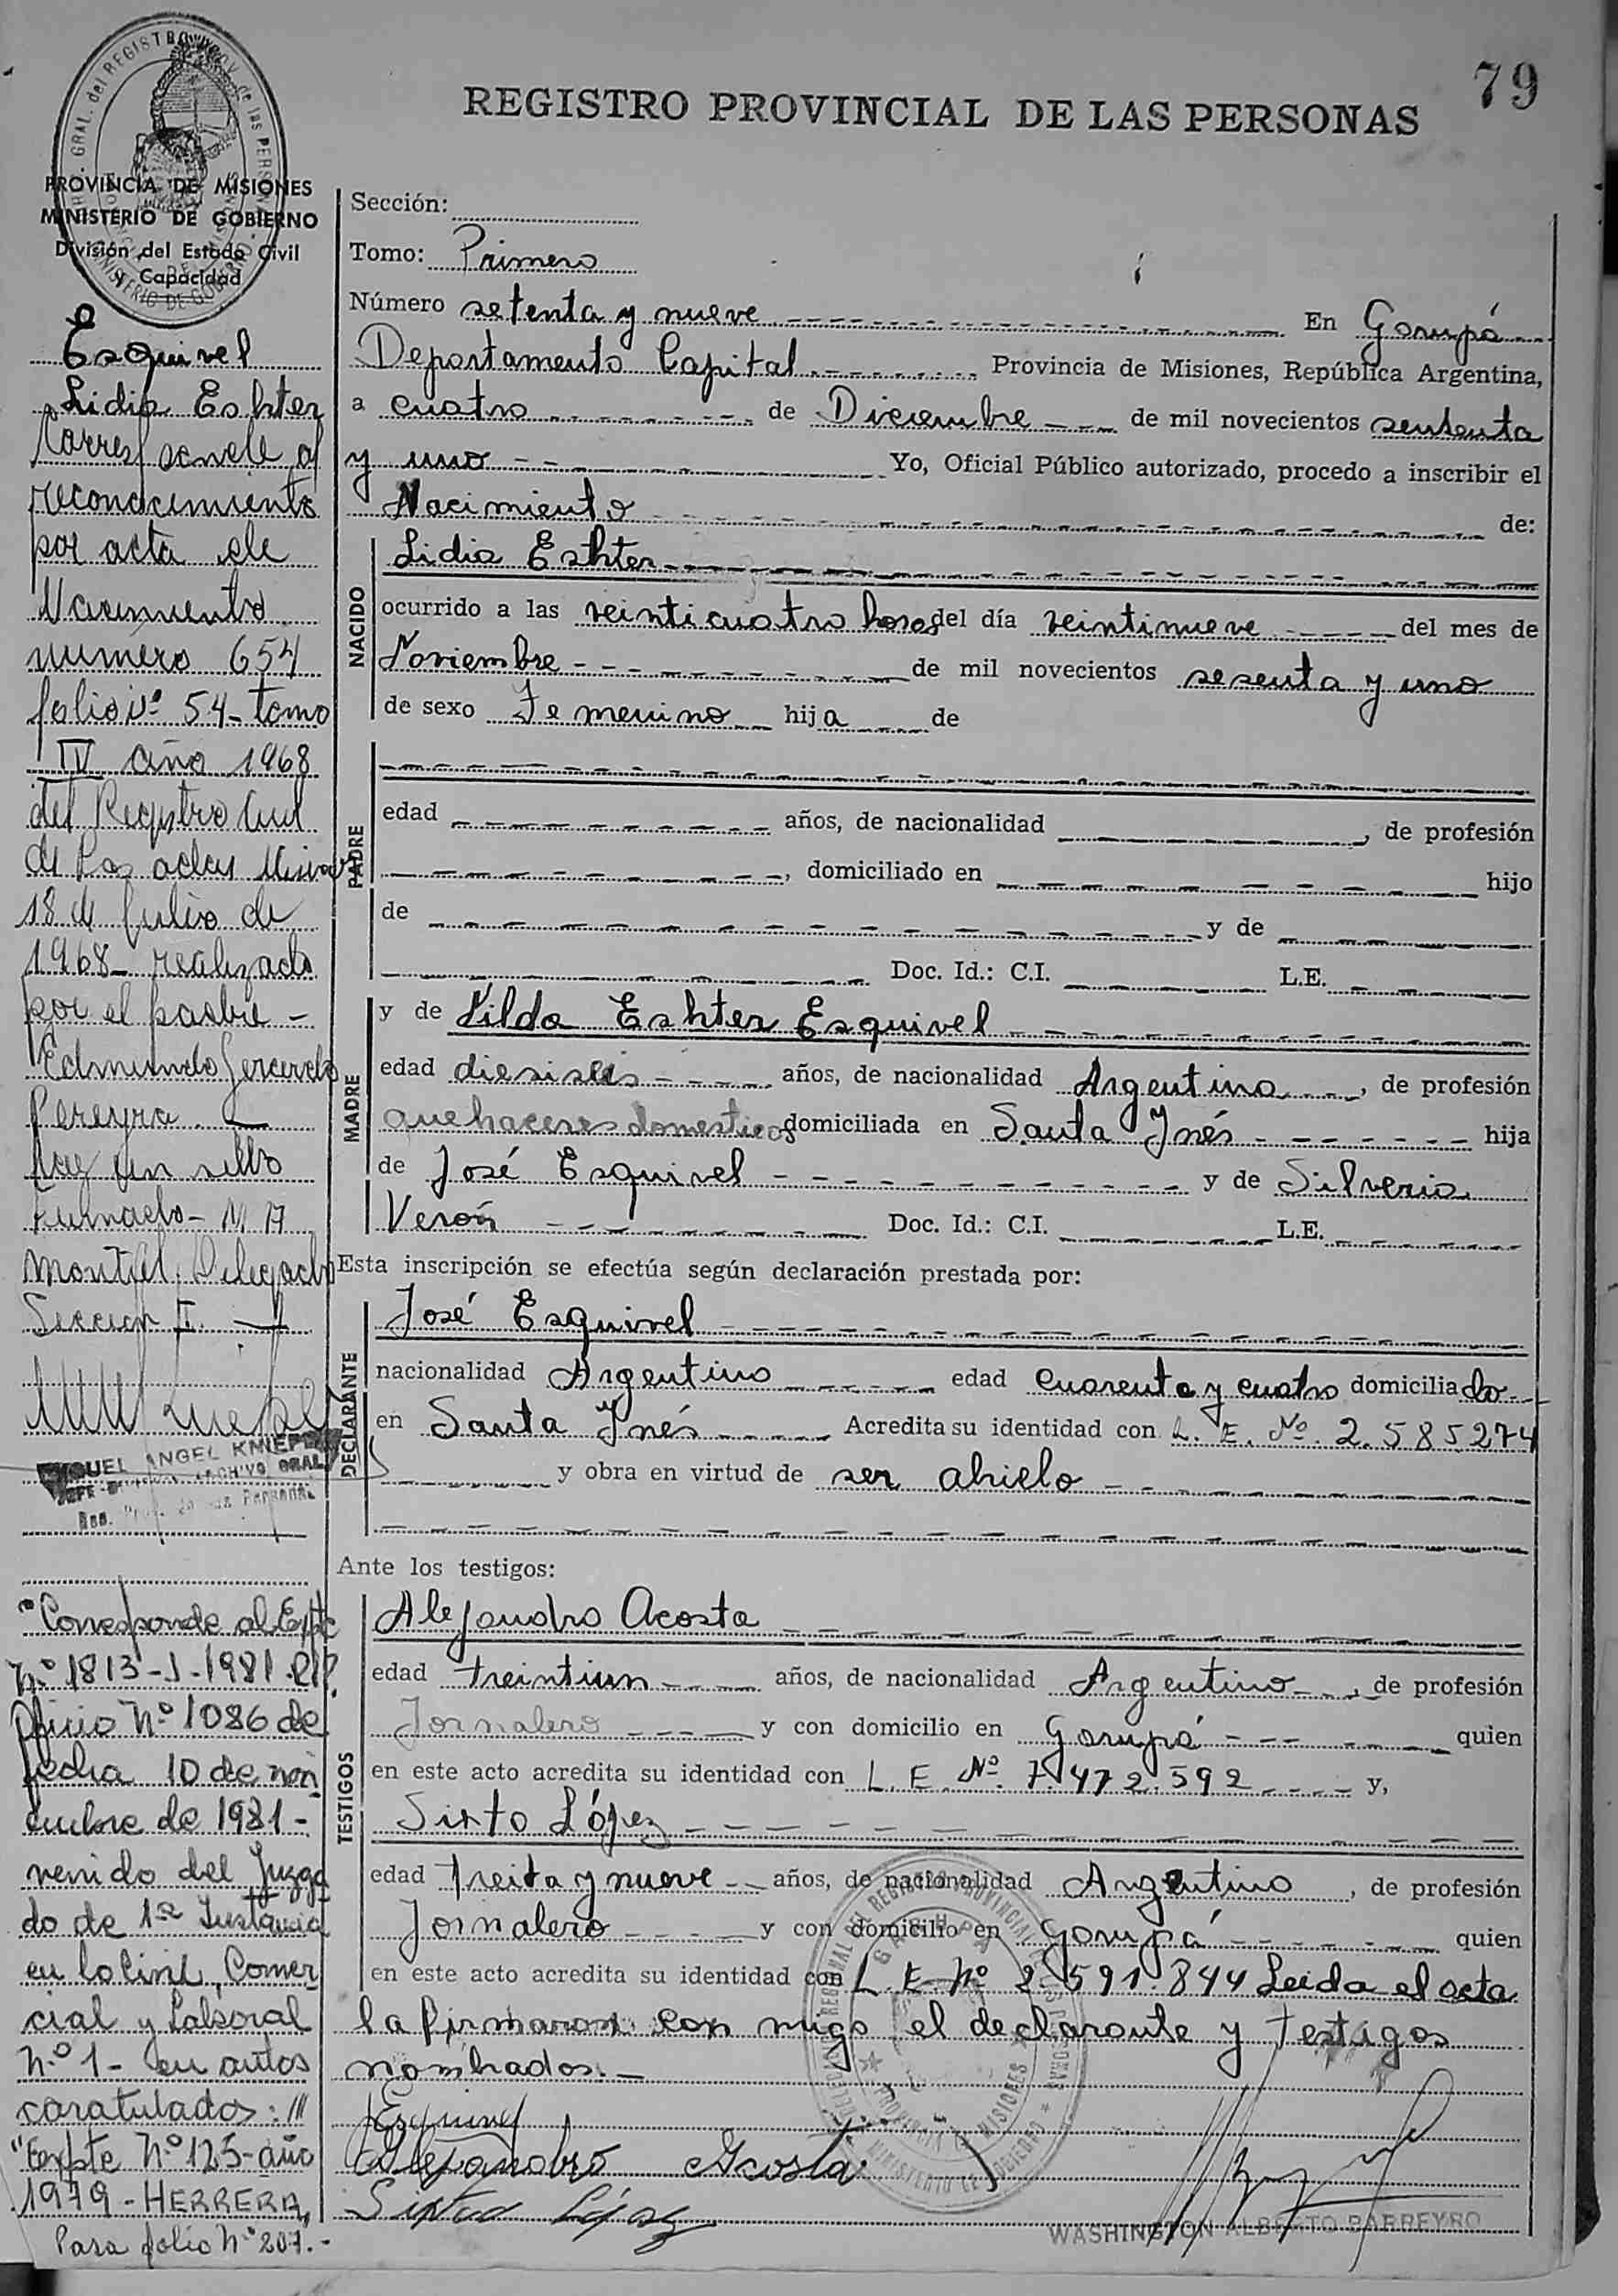 79
REGISTRO PROVINCIAL DE LAS PERSONAS
PROVINCIA DE MISIONES
MINISTERIO DE GOBIERNO
División del Estado Civil
y Capacidad
Esquivel
Lidia Eshter
Corresponde al
reconocimiento
por acta de
Nacimiento
número 654
folio Nº 54 - tomo
IV año 1968
del Registro Civil
de Posadas Misiones
18 de Julio de
1968 - realizado
por el padre -
Edmundo Gerardo
Pereyra. -
hay un sello
Firmado - M A
Montiel. Delegado
Sección I. -
MIGUEL ANGEL KNIEP
"Corresponde al Expte
Nº 1813-J-1981
Oficio Nº 1086 de
fecha 10 de nov
iembre de 1981 -
venido del Juzga
do de 1ra Instancia
en lo Civil, Comer
cial y Laboral
Nº 1 - en autos
caratulados: ///
"Expte Nº 125 - año
1979 - HERRERA,
Pasa folio Nº 207.-
Sección:
Tomo: Primero
Número setenta y nueve En Garupá
Departamento Capital Provincia de Misiones, República Argentina,
a cuatro de Diciembre de mil novecientos sententa
y uno Yo, Oficial Público autorizado, procedo a inscribir el
Nacimiento de:
NACIDO
Lidia Eshter
ocurrido a las veinticuatro horas del día veintinueve del mes de
Noviembre de mil novecientos sesenta y uno
de sexo Femenino hija de
PADRE
edad años, de nacionalidad , de profesión
, domiciliado en hijo
de y de
Doc. Id.: C.I. L.E.
MADRE
y de Hilda Eshter Esquivel
edad diesiseis años, de nacionalidad Argentina , de profesión
que haceres domesticos domiciliada en Santa Ynés hija
de José Esquivel y de Silveria
Verón Doc. Id.: C.I. L.E.
Esta inscripción se efectúa según declaración prestada por:
DECLARANTE
José Esquivel
nacionalidad Argentino edad cuarenta y cuatro domiciliado
en Santa Ynés Acredita su identidad con L. E. Nº. 2.585274
y obra en virtud de ser abuelo
Ante los testigos:
TESTIGOS
Alejandro Acosta
edad treintiun años, de nacionalidad Argentino , de profesión
Jornalero y con domicilio en Garupá quien
en este acto acredita su identidad con L. E. Nº. 7.472.592 y,
Sixto López
edad treita y nueve años, de nacionalidad Argentino , de profesión
Jornalero y con domicilio en Garupá quien
en este acto acredita su identidad con L. E. Nº 2.591.844 Leida el acta
la firmaron con migo el declarante y testigos
nombrados. -
JEsquivel
Alejandro Acosta
Sixto López
WASHINGTON ALBERTO BARREYRO